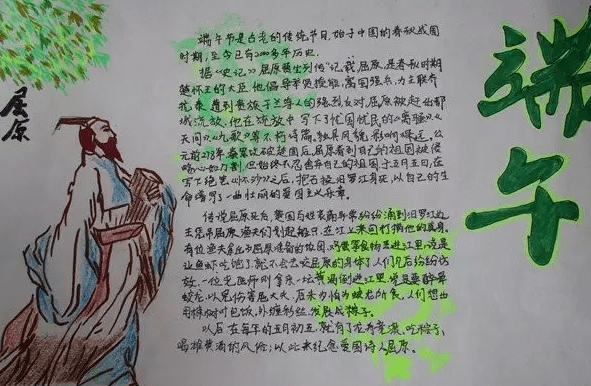 端午
屈原
端午节是古老的传统节日,始于中国的春秋战国
时期,至今已有2000多年历史.
据《史记》"屈原贾生列传"记载,屈原,是春秋时期
楚怀王的大臣,他倡导举贤授能,富国强兵,力主联齐
抗秦,遭到贵族子兰等人的强烈反对,屈原被赶出都
城流放,他在流放中写下了忧国忧民的《离骚》《
天问》《九歌》等不朽诗篇,独具风貌,影响深远,公
元前278年,秦军攻破楚国后,屈原看到自己的祖国被侵
略,心如刀割,但始终不忍舍弃自己的祖国,于五月五日,在
写下绝笔《怀沙》之后,抱石投汨罗江身死,以自己的生
命谱写了一曲壮丽的爱国主义乐章.
传说屈原死后,楚国百姓哀痛异常,纷纷涌到汨罗江边
去凭吊屈原.渔夫们划起船只,在江上来回打捞他的真身.
有位渔夫拿出为屈原准备的饭团、鸡蛋等食物丢进江里,说是
让鱼虾吃饱了,就不会去咬屈原的身体了.人们见后纷纷仿
效.一位老医师则拿来一坛黄酒倒进江里,说是要醉晕
蛟龙,以免伤害屈大夫.后来为怕为蛟龙所食,人们想出
用楝树叶包饭,外缠彩丝,发展成粽子.
以后,在每年的五月初五,就有了龙舟竞渡、吃粽子、
喝雄黄酒的风俗;以此来纪念爱国诗人屈原.